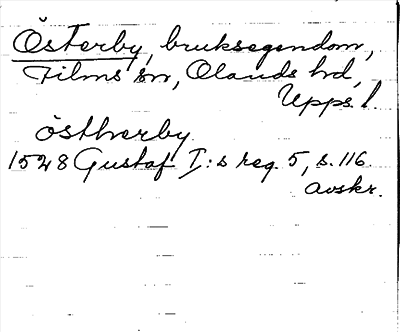 Österby, bruksegendom,
Films sn, Olands hd,
Upps. l.
östhrerby
1528 Gustaf I:s reg. 5, s. 116.
avskr.